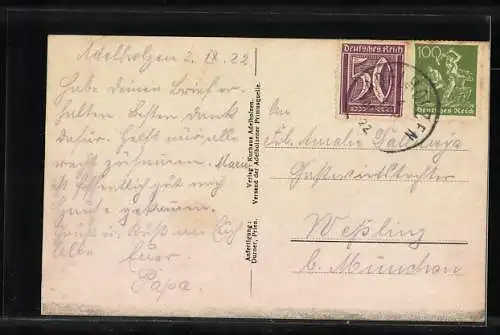 Adelholzen 2. IX. 22
Habe deinen Brief er-
halten. Besten Dank
dafür. Helft nur alle
recht zusammen. Marie
ist hoffentlich gut nach
Hause gekommen.
Gruß u. Kuß an Euch
Alle Euer
Papa.
Verlag: Kurhaus Adelholzen.
Versand der Adelholzener Primusquelle.
Anfertigung:
Durner, Prien.
Deutsches Reich
50
100
Deutsches Reich
22
An
Frl. Amalie
Gastwirtstochter
Weßling
b. München